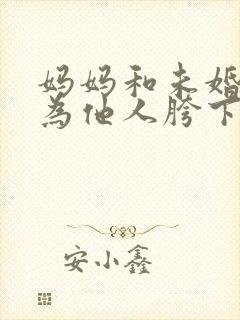 妈妈和未婚
为他人胯下
安小鑫